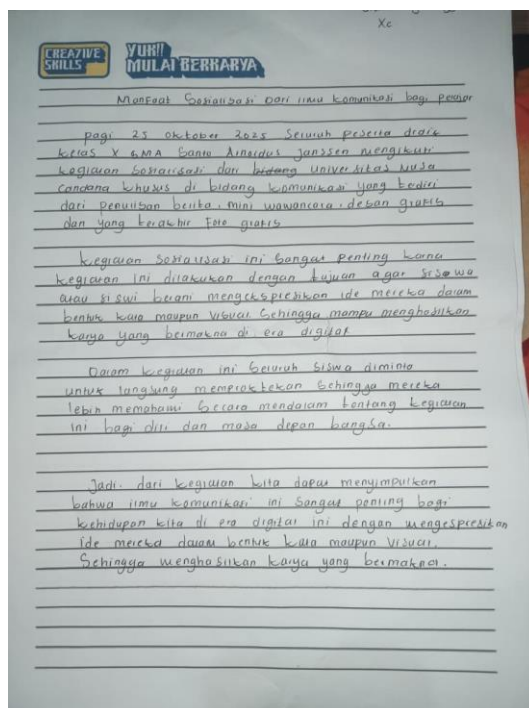 Xc
CREATIVE
SKILLS
YUK!!
MULAI BERKARYA
Manfaat Sosialisasi Dari ilmu komunikasi bagi pelajar
pagi 25 oktober 2025 Seluruh peserta didik
kelas X SMA Santo Arnoldus Janssen mengikuti
kegiatan Sosialisasi dari bidang universitas Nusa
Cendana khusus di bidang komunikasi yang terdiri
dari penulisan berita, mini wawancara, desain grafis
dan yang terakhir Foto grafis
kegiatan Sosialisasi ini Sangat penting karna
kegiatan ini dilakukan dengan tujuan agar siswa
atau siswi berani mengekspresikan ide mereka dalam
bentuk kata maupun visual Sehingga mampu menghasilkan
karya yang bermakna di era digital
Dalam kegiatan ini Seluruh siswa diminta
untuk langsung mempraktekan Sehingga mereka
lebih memahami Secara mendalam tentang kegiatan
ini bagi diri dan masa depan bangsa.
Jadi. dari kegiatan kita dapat menyimpulkan
bahwa ilmu komunikasi ini Sangat penting bagi
kehidupan kita di era digital ini dengan mengespresikan
ide mereka dalam bentuk kata maupun visual.
Sehingga menghasilkan karya yang bermakna.